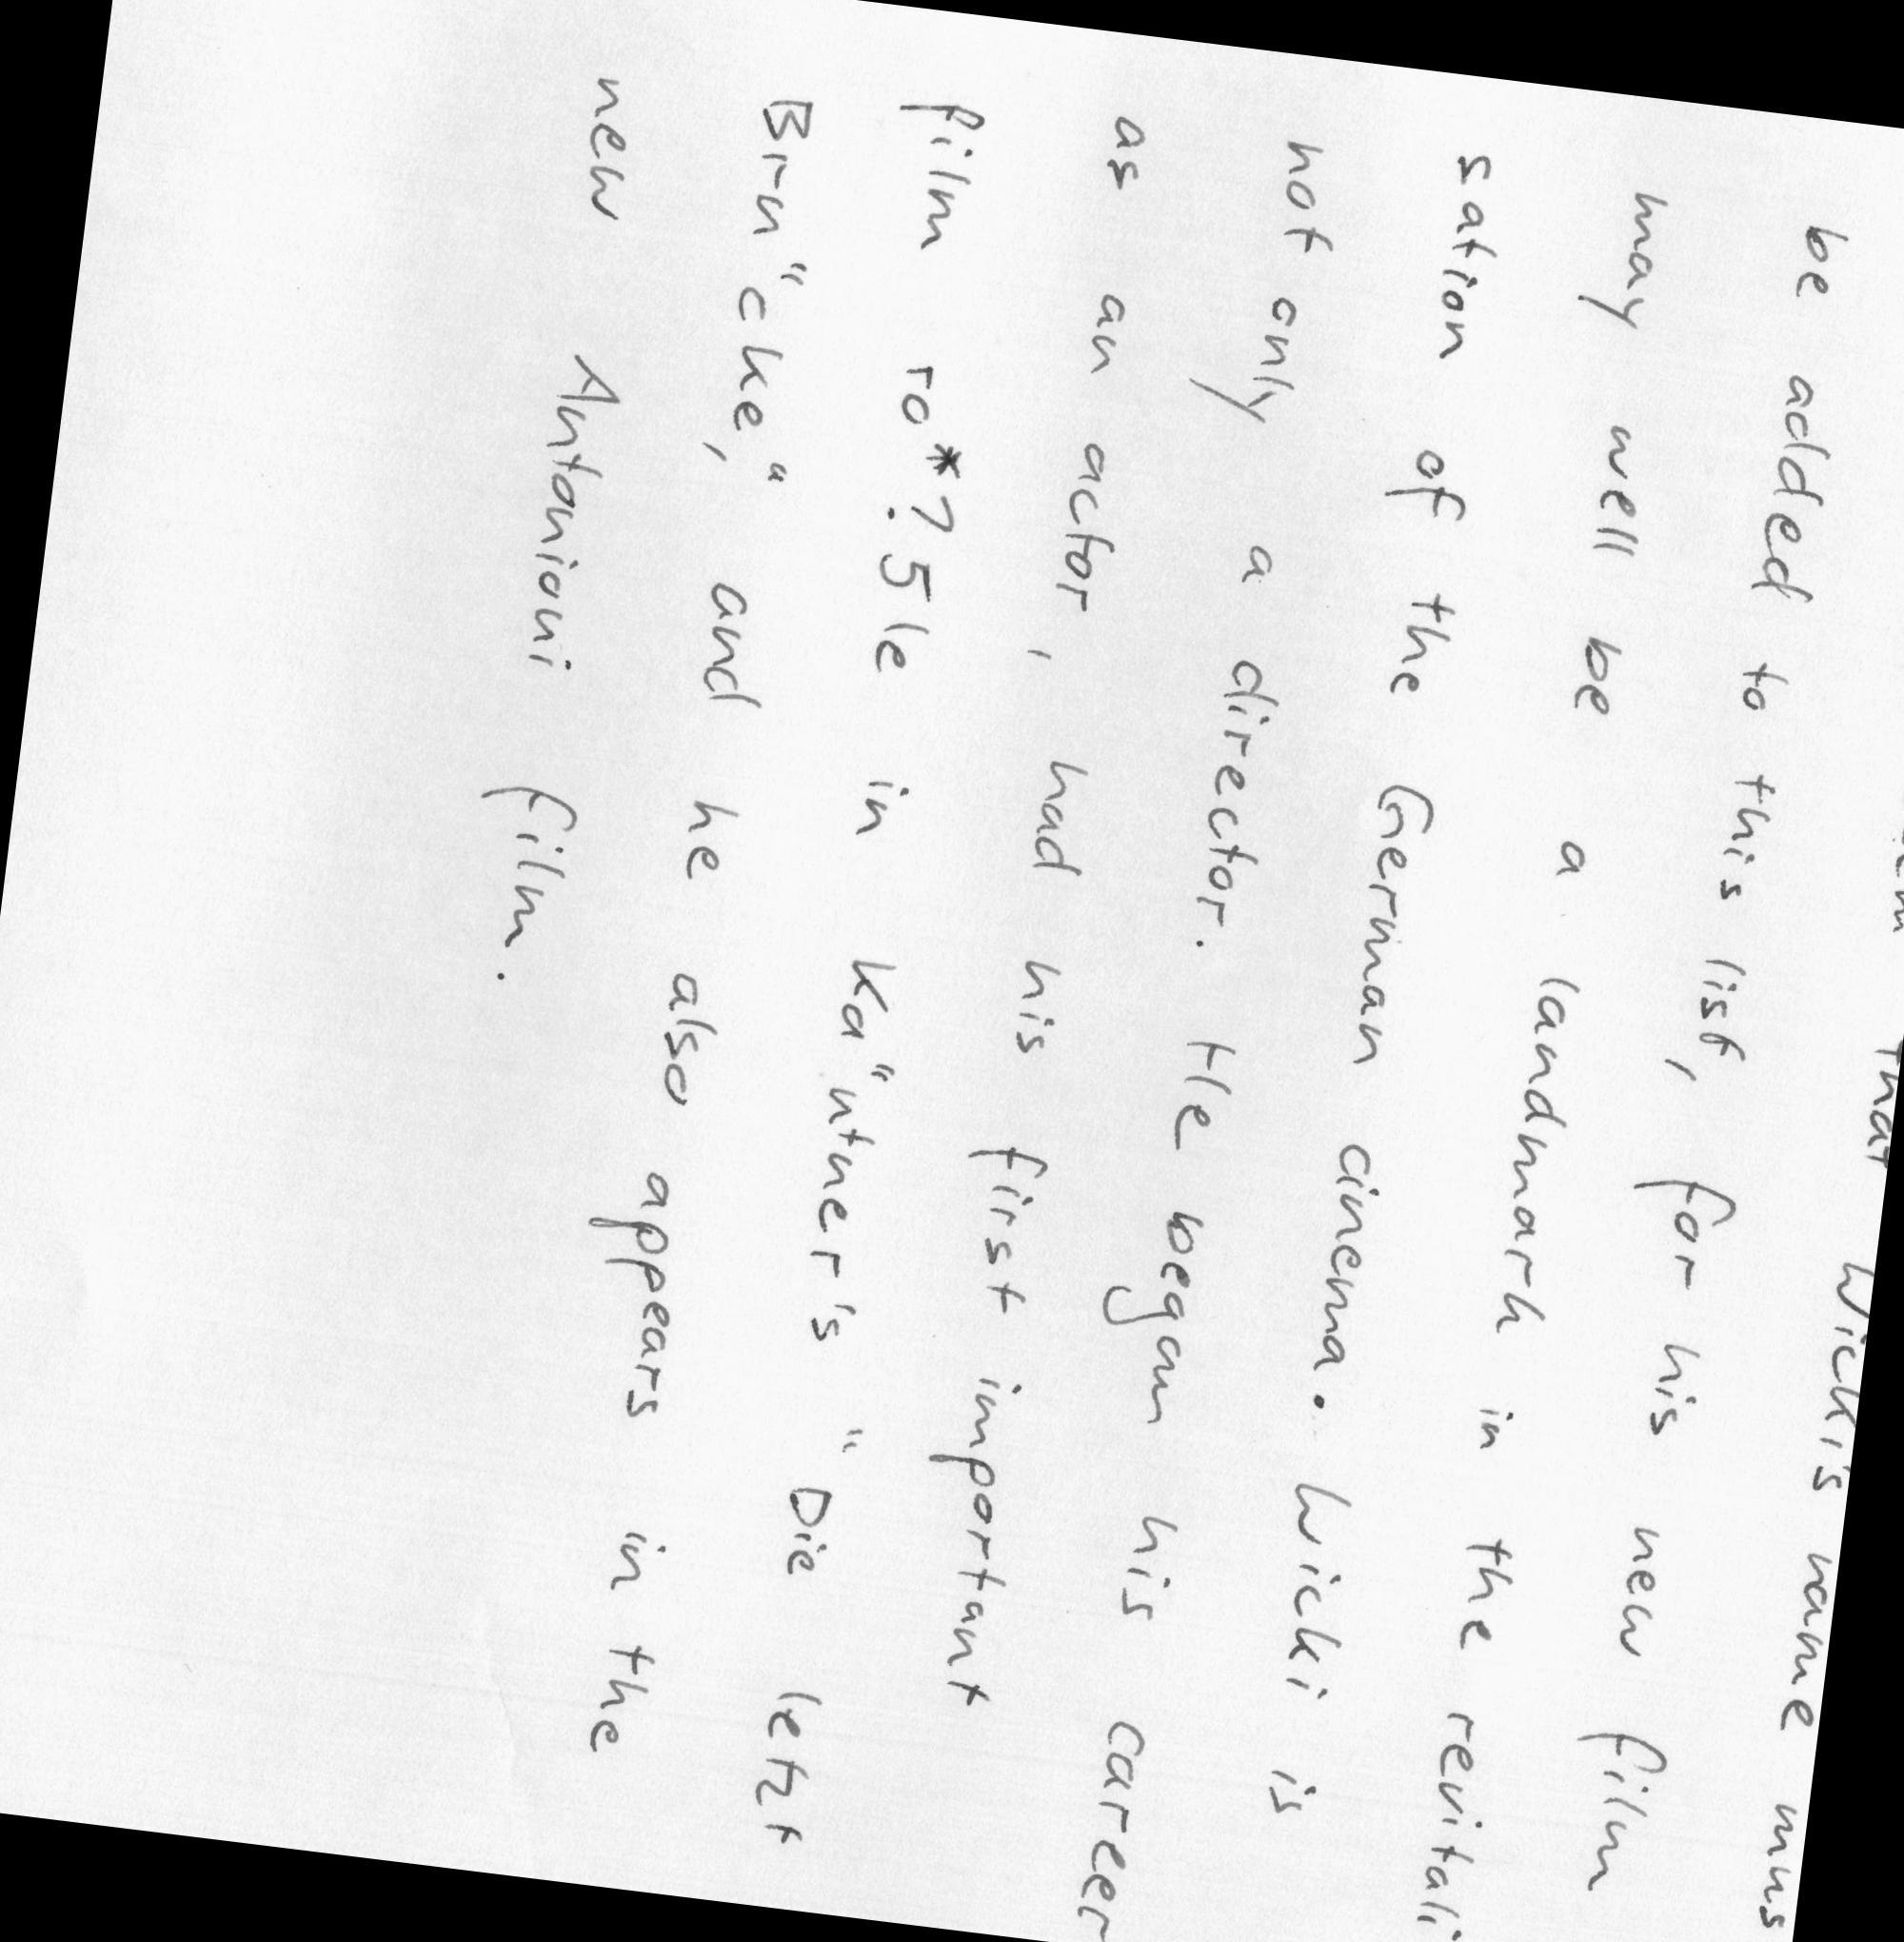 that Wicki's name mus
be added to this list, for his new film
may well be a landmark in the revitali
sation of the German cinema. Wicki is
not only a director. He began his career
as an actor, had his first important
film ro*?5le in Ka"utner's "Die letzt
Bru"cke", and he also appears in the
new Antonioni film.